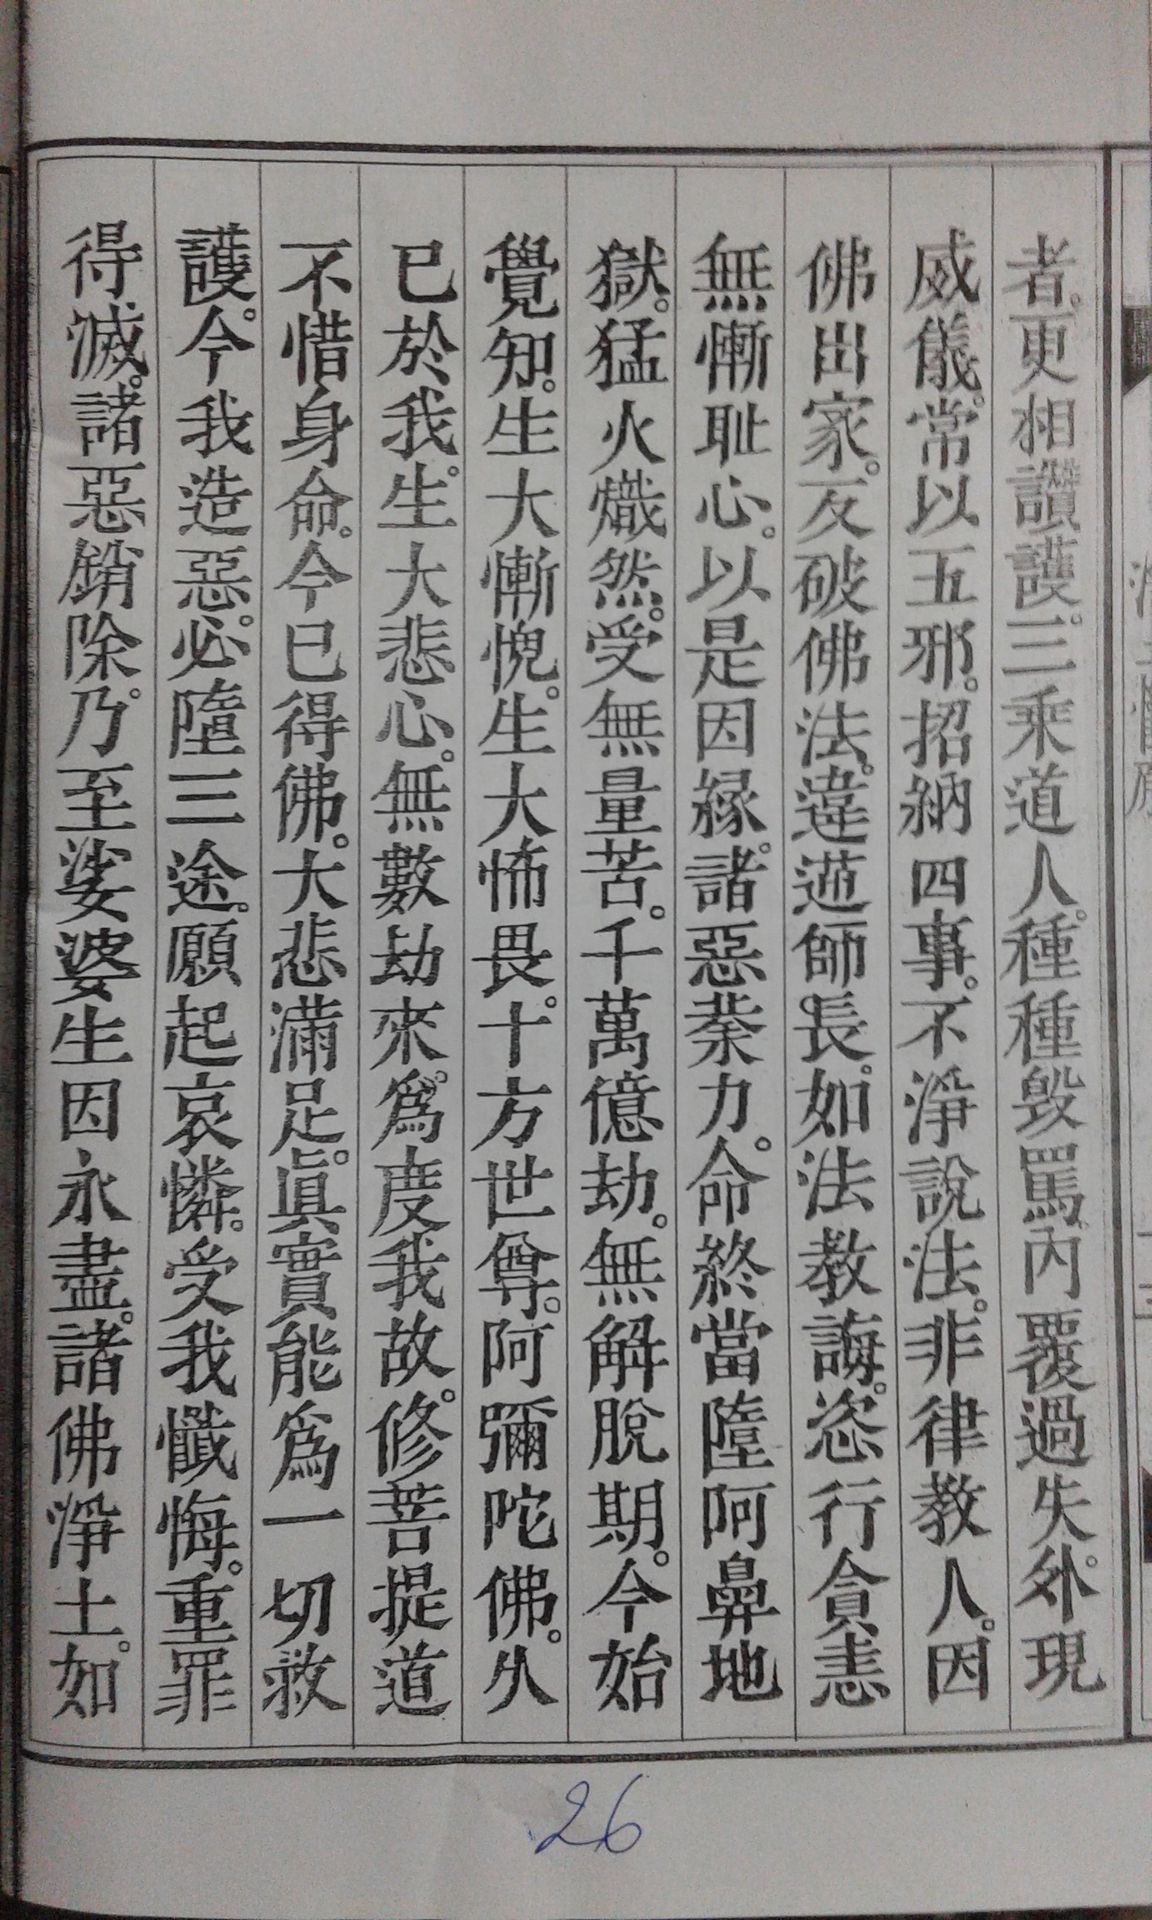 者。更相讚護。三乘道人。種種毀罵內覆過失。外現
威儀。常以五邪。招納四事。不淨說法。非律教人。因
佛出家。反破佛法。違逆師長。如法教誨。恣行貪恚
無慚耻心。以是因緣。諸惡業力。命終當墮阿鼻地
獄。猛火熾然。受無量苦。千萬億劫。無解脫期。今始
覺知。生大慚愧。生大怖畏。十方世尊。阿彌陀佛。久
已於我。生大悲心。無數劫來。爲度我故。修菩提道
不惜身命。今已得佛。大悲滿足。眞實能爲一切救
護。今我造惡。必墮三途。願起哀憐。受我懺悔。重罪
得滅。諸惡銷除。乃至娑婆生因永盡。諸佛淨土。如
26